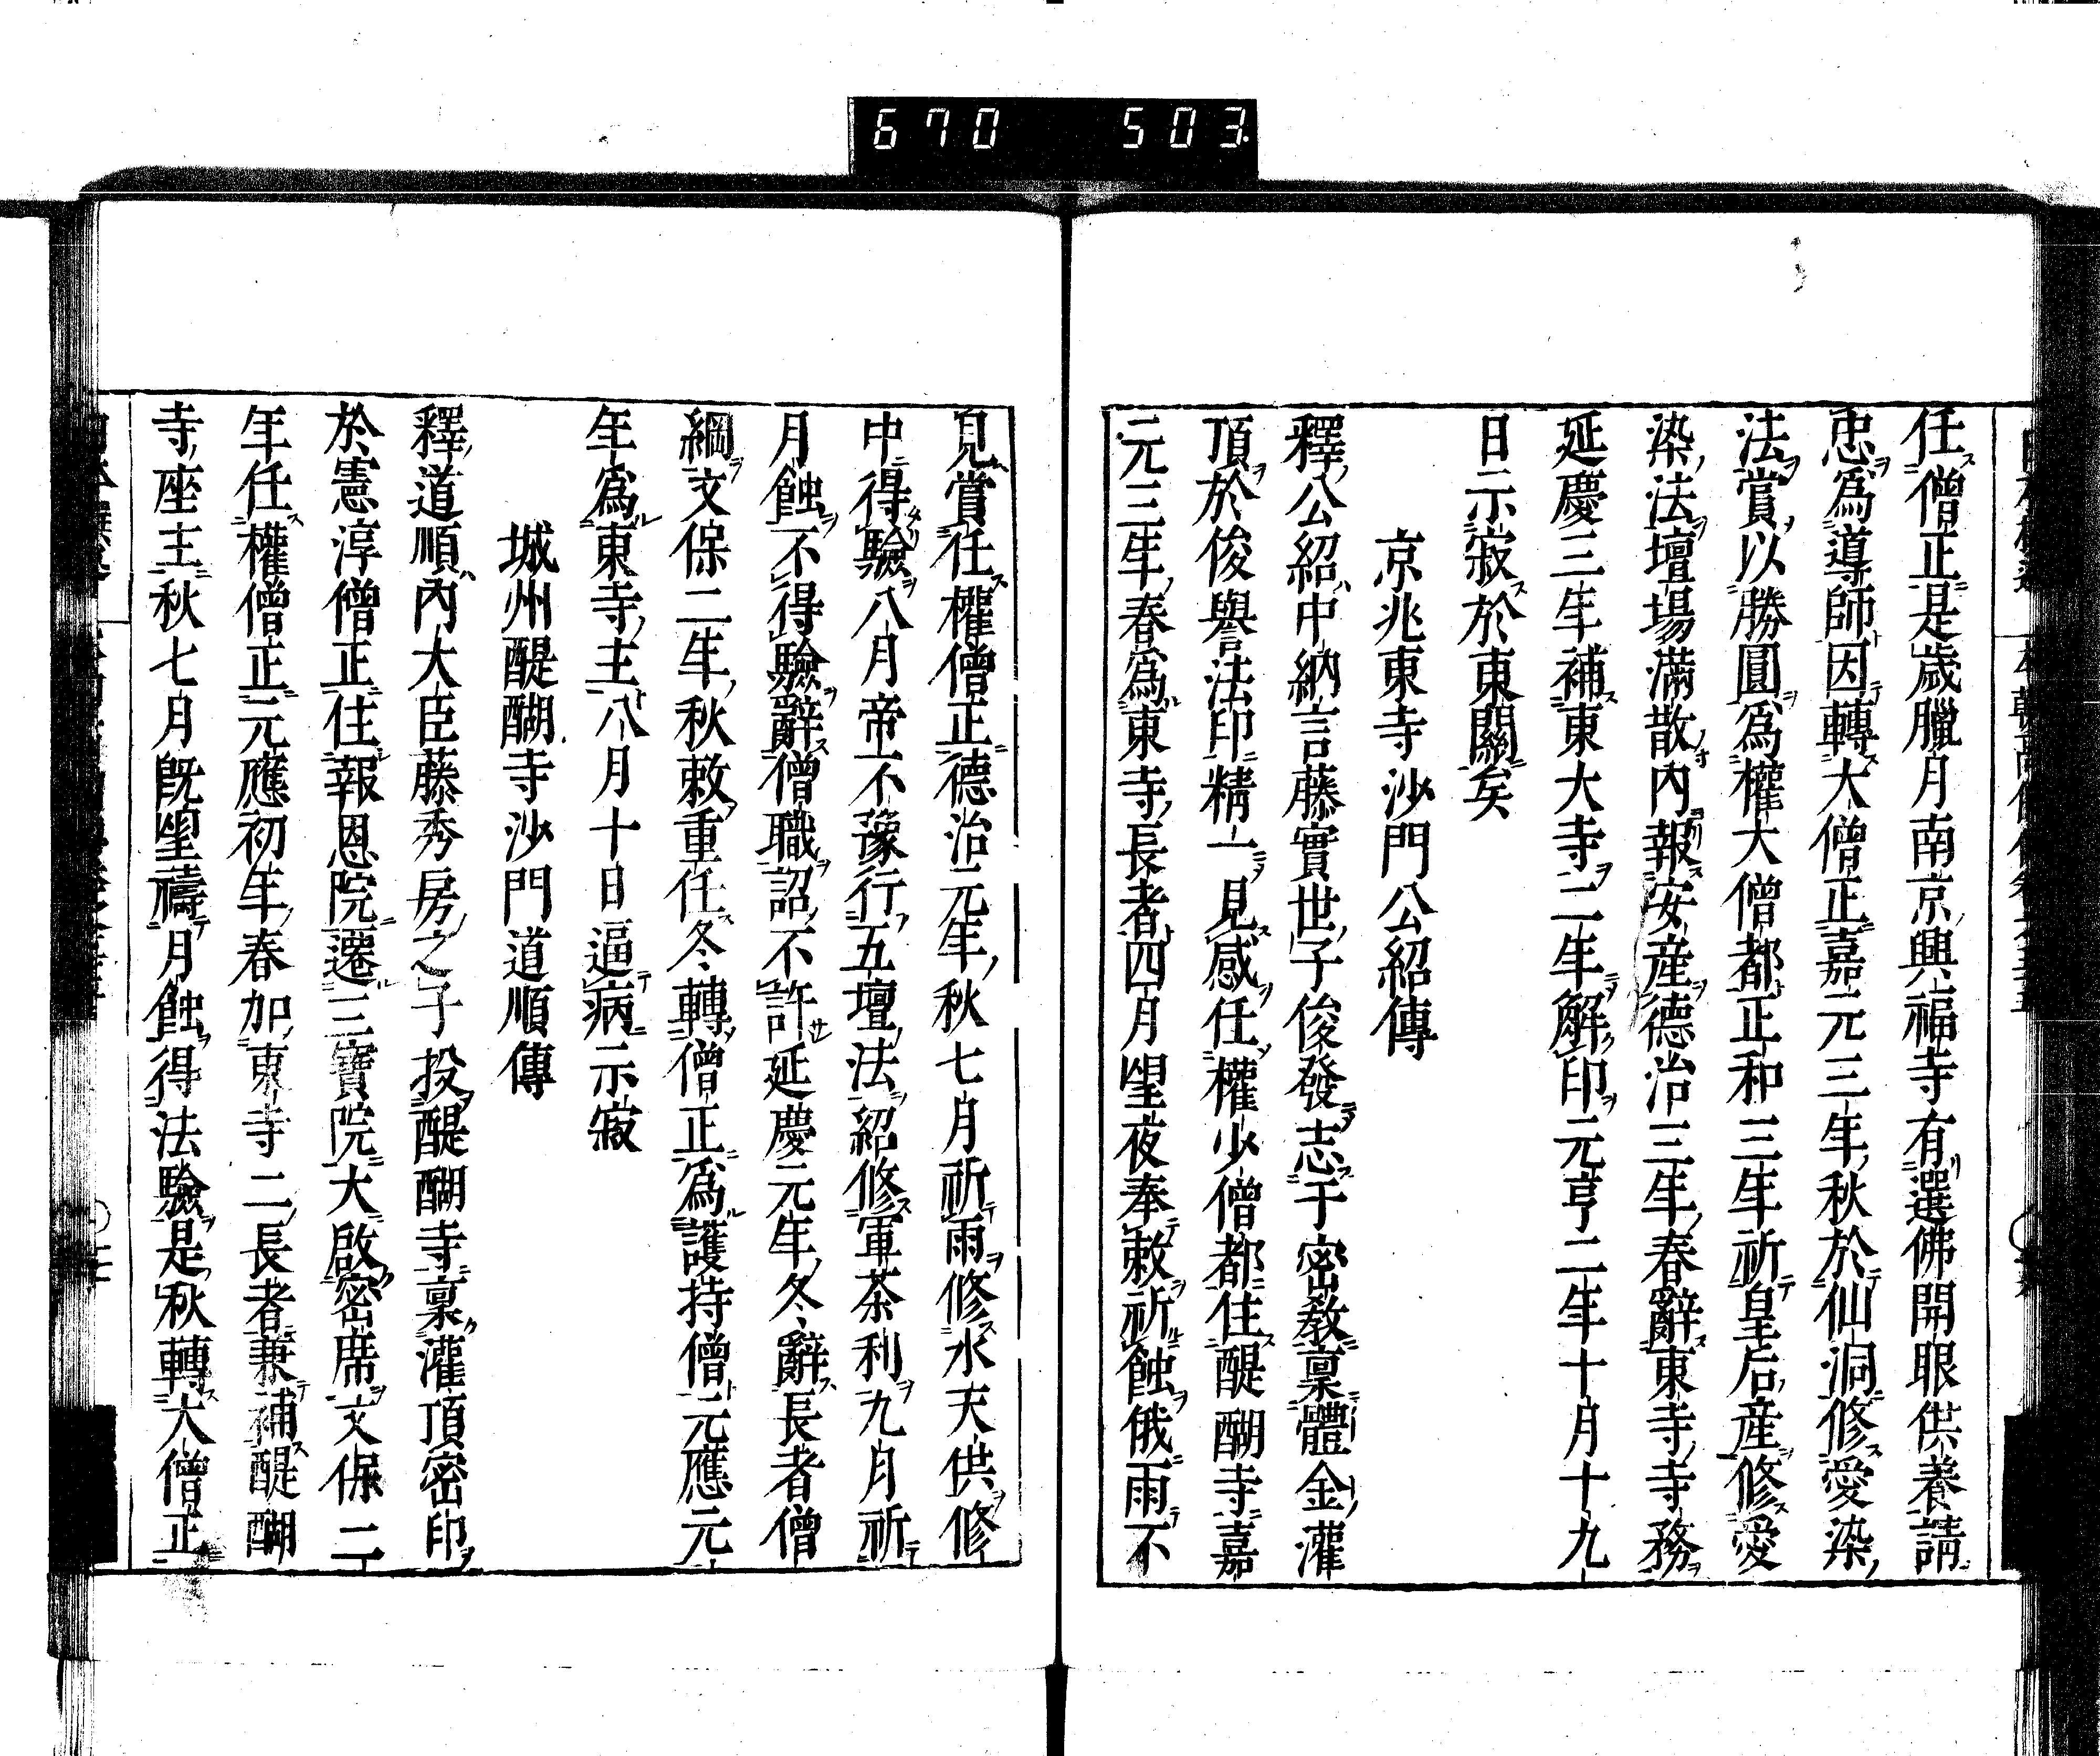 670 503
任僧正是歲臘月南京興福寺有選佛開眼供養請
忠為導師因轉大僧正嘉元三年秋於仙洞修愛染
法賞以勝圓為權大僧都正和三年祈皇后產修愛
染法壇場滿散內報安產德治三年春辭東寺寺務
延慶三年補東大寺二年解印元亨二年十月十九
日示寂於東關矣
京兆東寺沙門公紹傳
釋公紹中納言藤實世子俊發志于密教稟體金灌
頂於俊譽法印精一見感任權少僧都住醍醐寺嘉
元三年春為東寺長者四月朢夜奉敕祈蝕俄雨不
見賞任權僧正德治元年秋七月祈雨修水天供修
中得驗八月帝不豫行五壇法紹修軍荼利九月祈
月蝕不得驗辭僧職詔不許延慶元年冬辭長者僧
綱文保二年秋敕重任冬轉僧正為護持僧元應元
年為東寺主八月十日逼病示寂
城州醍醐寺沙門道順傳
釋道順內大臣藤秀房之子投醍醐寺稟灌頂密印
於憲淳僧正住報恩院遷三寶院大啟密席文保二
年任權僧正元應初年春加東寺二長者兼補醍醐
寺座主秋七月既朢禱月蝕得法驗是秋轉大僧正